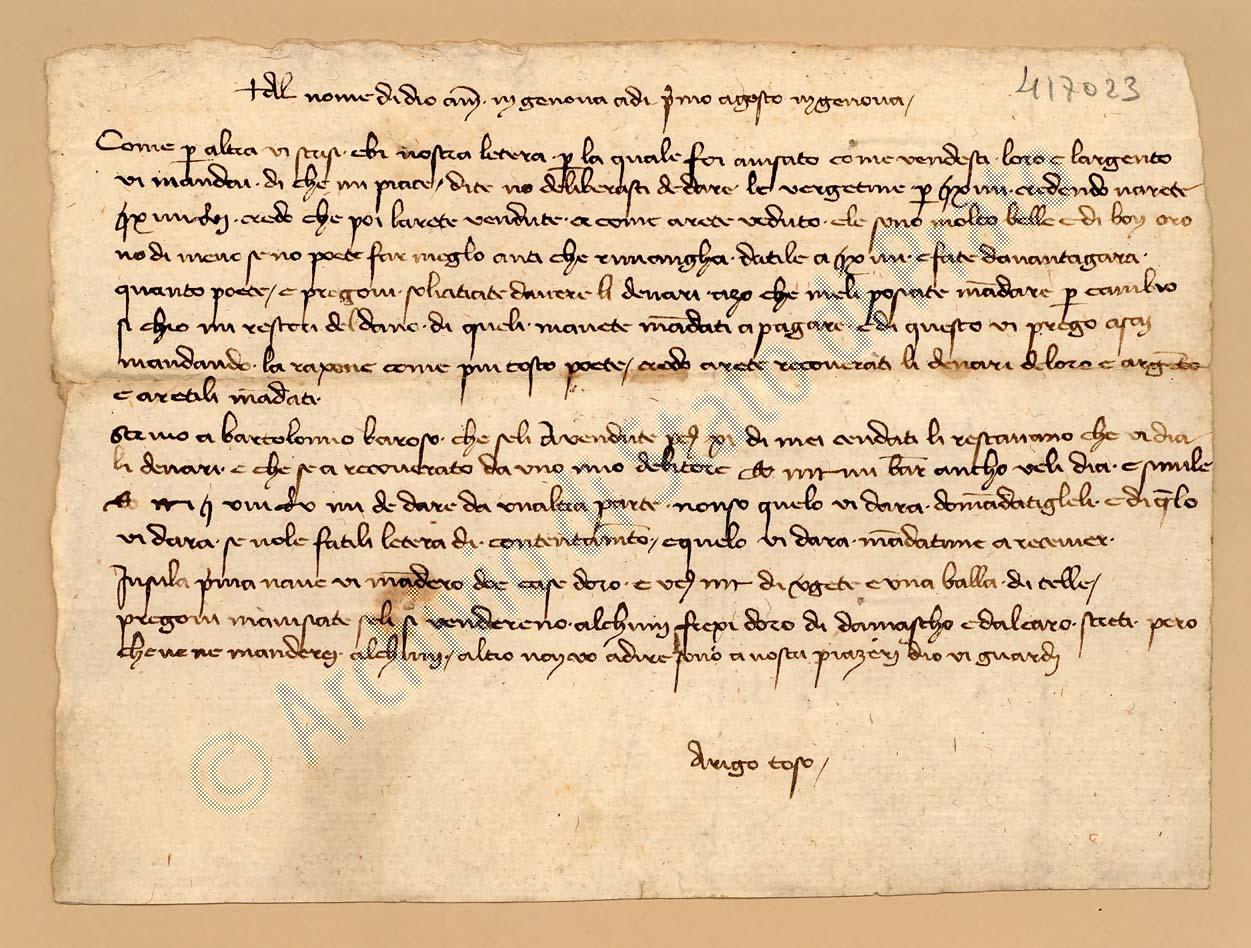 417023
+ Al nome di dio am. in genova adi primo agosto in genova /
Come per altra vi scrisi · ebi vostra letera · per la quale foi avisato come vendesti · loro e largento
vi mandai · di che mi piace / dite no deliberasti de dare · le vergetine per · credendo narete
credo che poi larete vendute · e come arete veduto · ele sono molto belle e di bon oro
no di meno se no poete far meglo anti che rimangha · datile a e fate davantagara ·
quanto poete / e pregovi · soliciticate davere li denari · azo che meli posiate mandare per canbio
si chio mi restori del dano · di queli · mavete mandati a pagare · e di questo vi prego asai
mandando · la raxone come piu tosto poete / credo arete recoverati li denari de loro e argento
e aretili mandati ·
Scrivo a bartolomio baroso · che seli A vendute pes xi di mei cendati li restavano che vi dia
li denari · e che se a recoverato da uno mio debitore bar ancho veli dia · e simile
mi de dare da unaltra parte · nonso quelo vi dara · domandatiglieli · e di quelo
vi dara · se vole fatili letera di · contentamento / e quelo vi dara · mandatime a recever ·
Insula prima nave vi mandero doe case doro · e di vgete e una balla · di telle /
pregovi mavisiate seli si vendereno · alchuni frexi doro di damascho e dalcaro · streti · pero
che ve ne manderei · alchuni / altro non vo a dire sono a vostri piazeri dio vi guardi
Arigo toso /
© Archivio di Stato di Prato